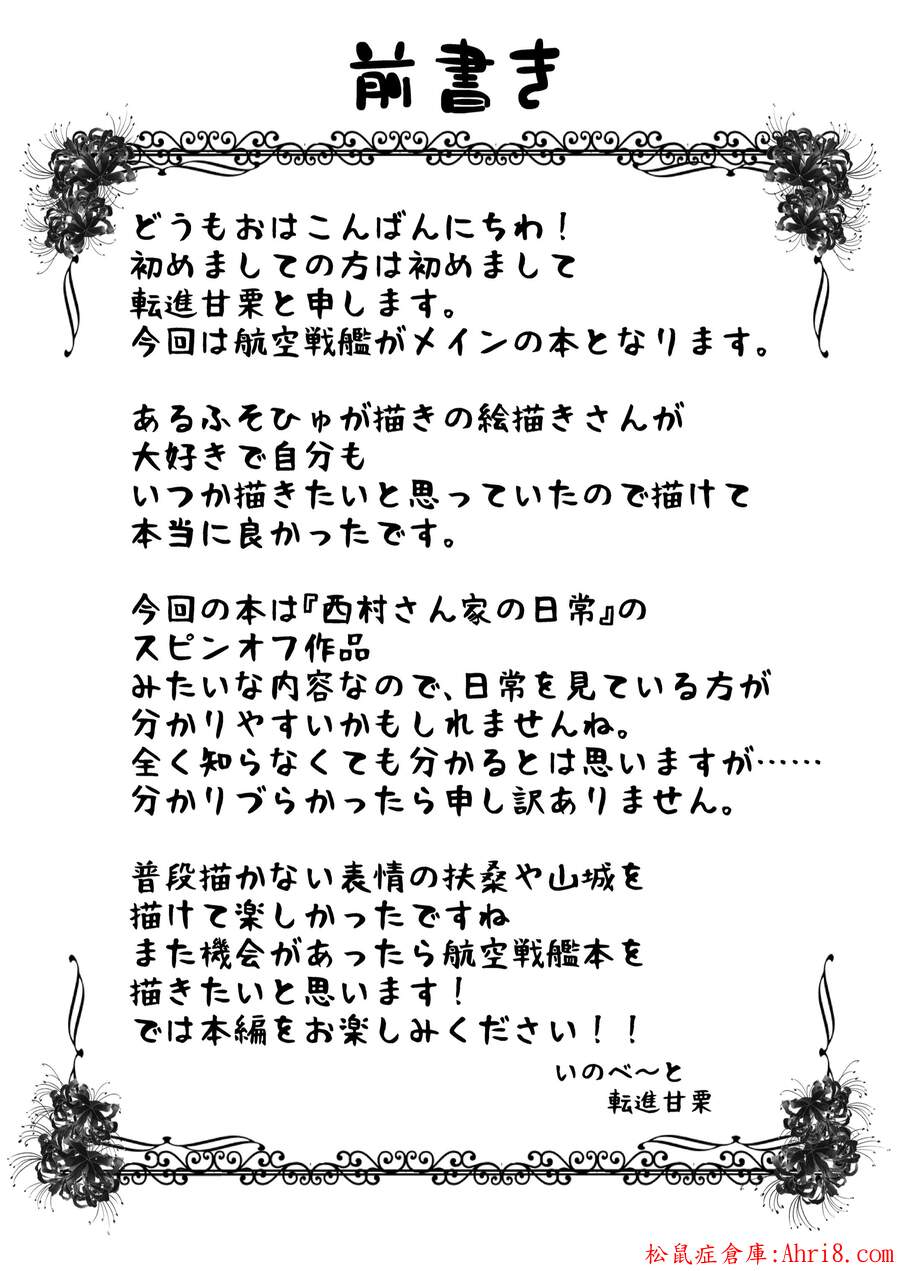 前書き
どうもおはこんばんにちわ！
初めましての方は初めまして
転進甘栗と申します。
今回は航空戦艦がメインの本となります。
あるふそひゅが描きの絵描きさんが
大好きで自分も
いつか描きたいと思っていたので描けて
本当に良かったです。
今回の本は『西村さん家の日常』の
スピンオフ作品
みたいな内容なので、日常を見ている方が
分かりやすいかもしれませんね。
全く知らなくても分かるとは思いますが……
分かりづらかったら申し訳ありません。
普段描かない表情の扶桑や山城を
描けて楽しかったですね
また機会があったら航空戦艦本を
描きたいと思います！
では本編をお楽しみください！！
いのべ～と
転進甘栗
松鼠症倉庫:Ahri8.com